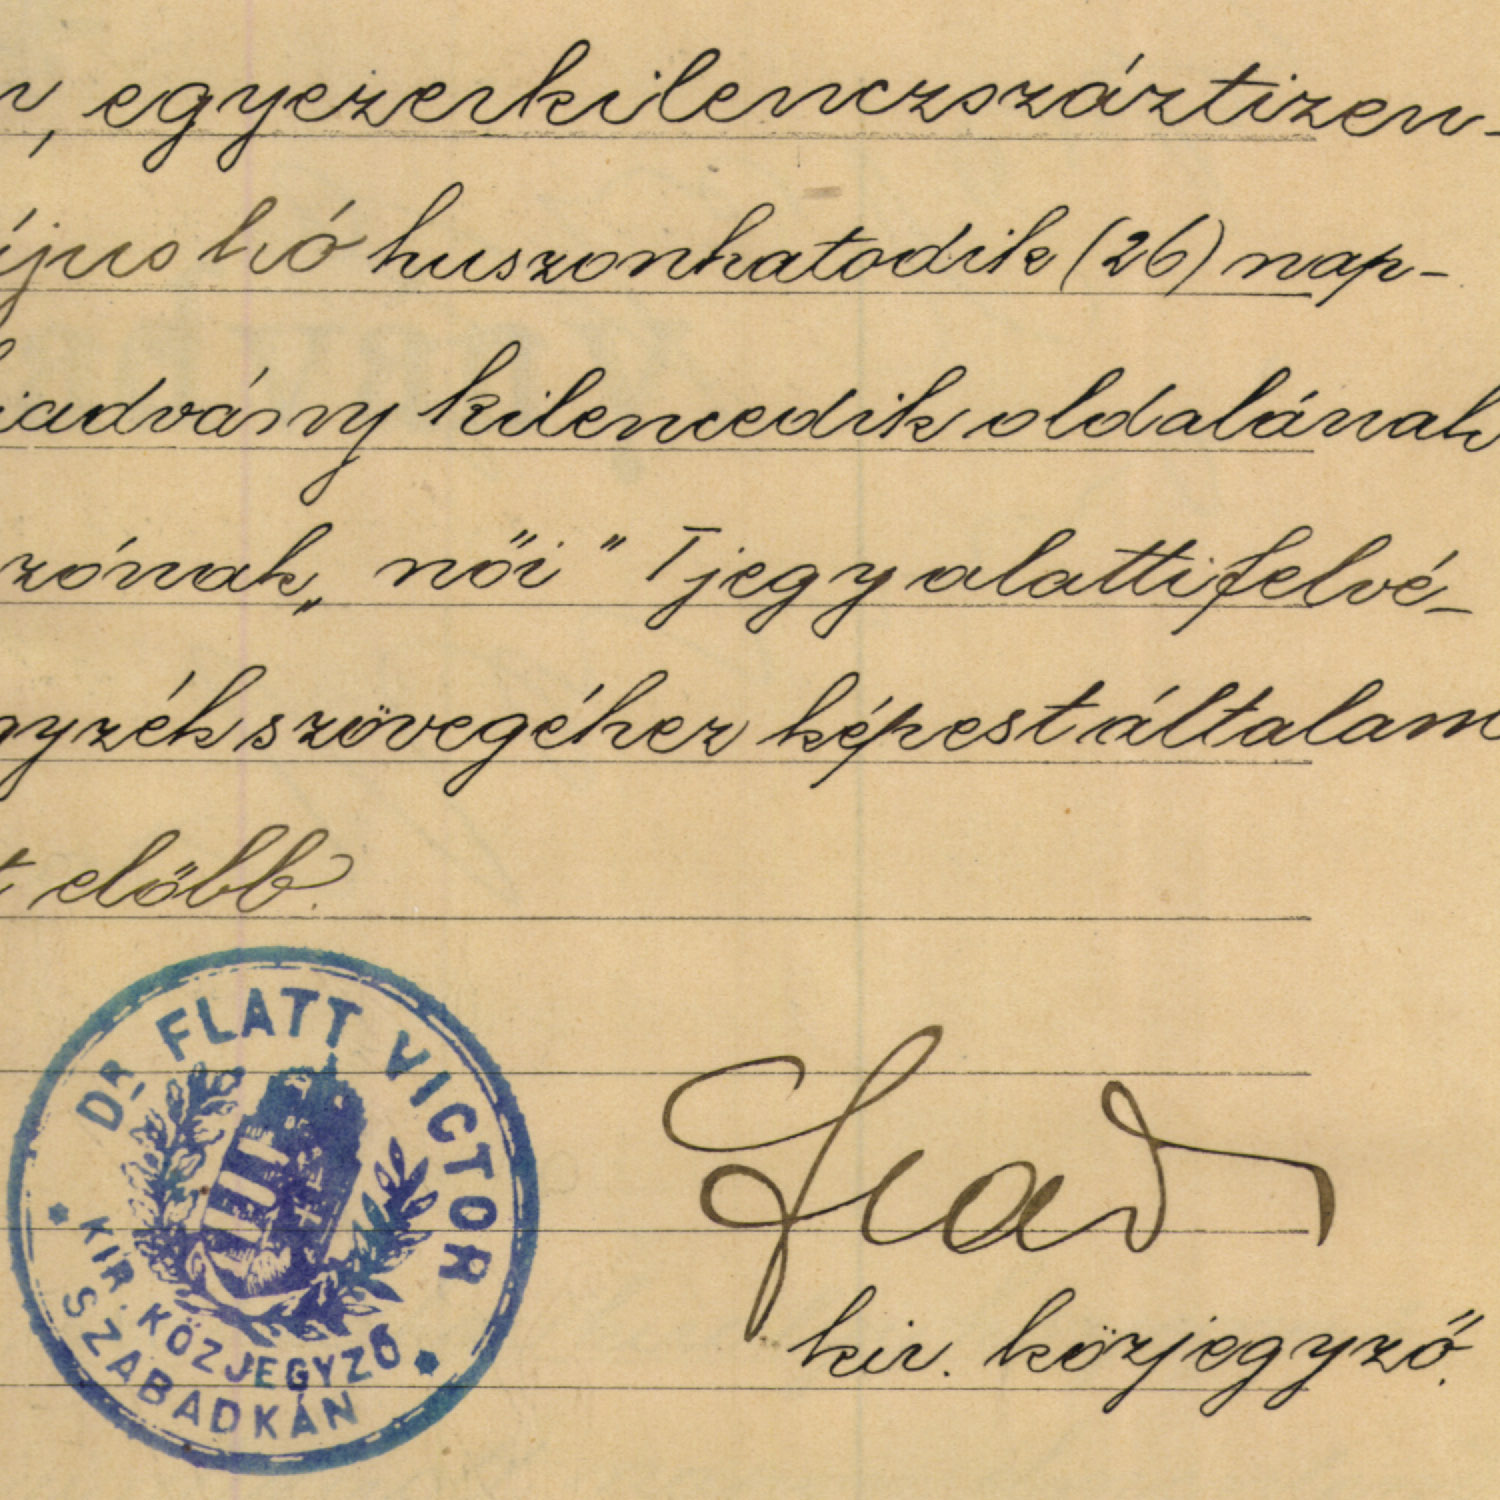 egyezerkilenczszáztizen-
hó huszonhatodik (26) nap-
kilencedik oldalának
„női" T jegy alatti felvé-
szövegéhez képest általam
előbb.
DR. FLATT VICTOR
KIR. KÖZJEGYZŐ
SZABADKÁN
kir. közjegyző.